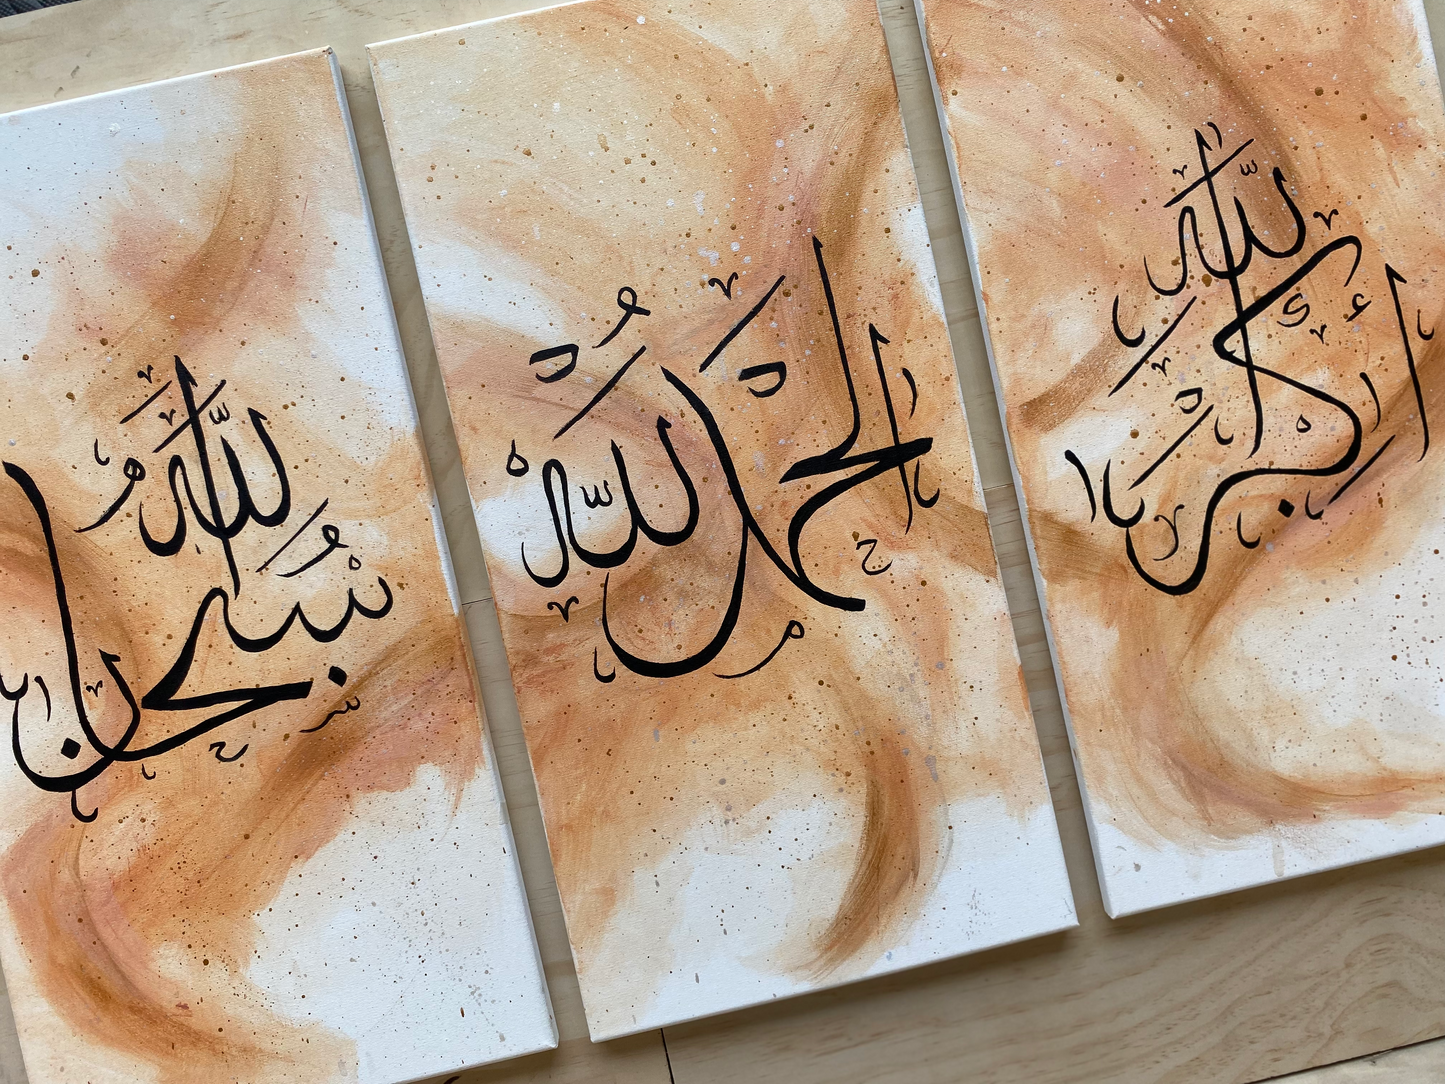 سبحن الله
الحمد لله
الله أكبر